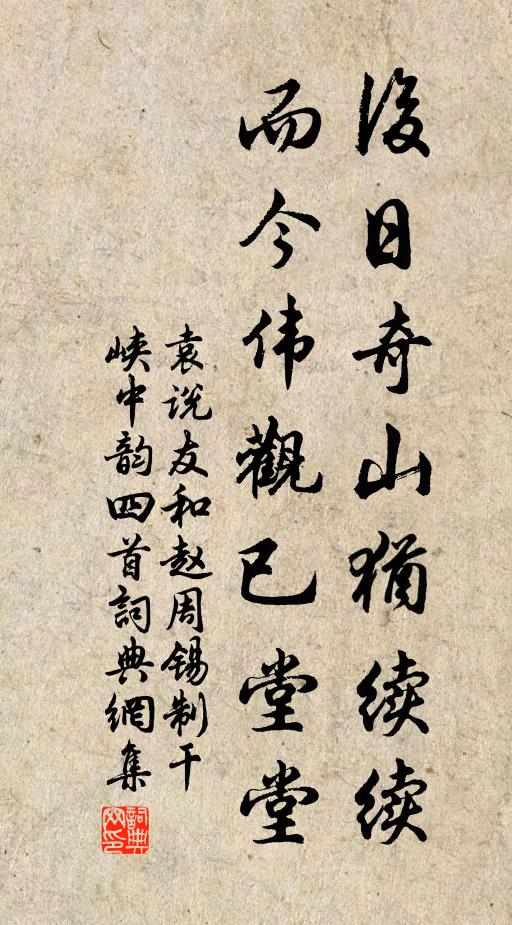 後日奇山猶续续
而今伟觀已堂堂
袁说友和赵周锡制干
峡中韵四首詞典網集
詞典网印